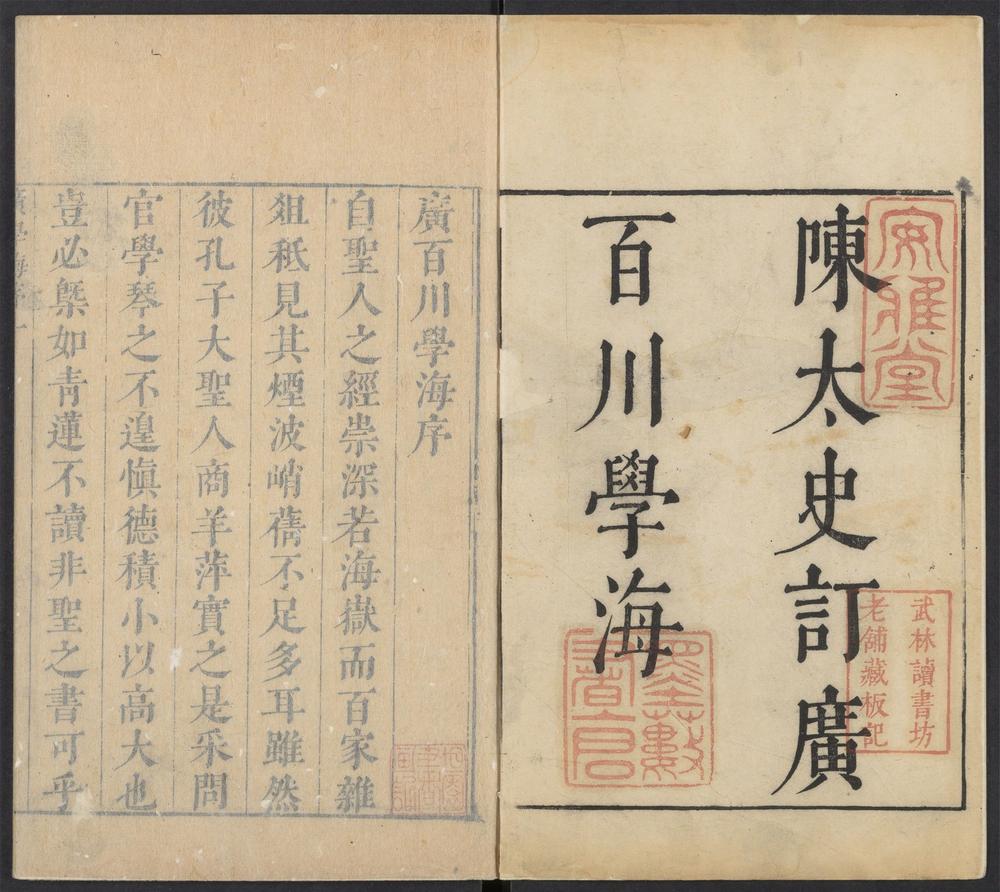 陳太史訂廣
百川學海
安雅堂
武林讀書坊
老舖藏板記
廣百川學海序
自聖人之經崇深若海嶽而百家雜
俎秪見其煙波峭蒨不足多耳雖然
彼孔子大聖人商羊萍實之是采問
官學琴之不遑愼德積小以高大也
豈必槩如靑蓮不讀非聖之書可乎